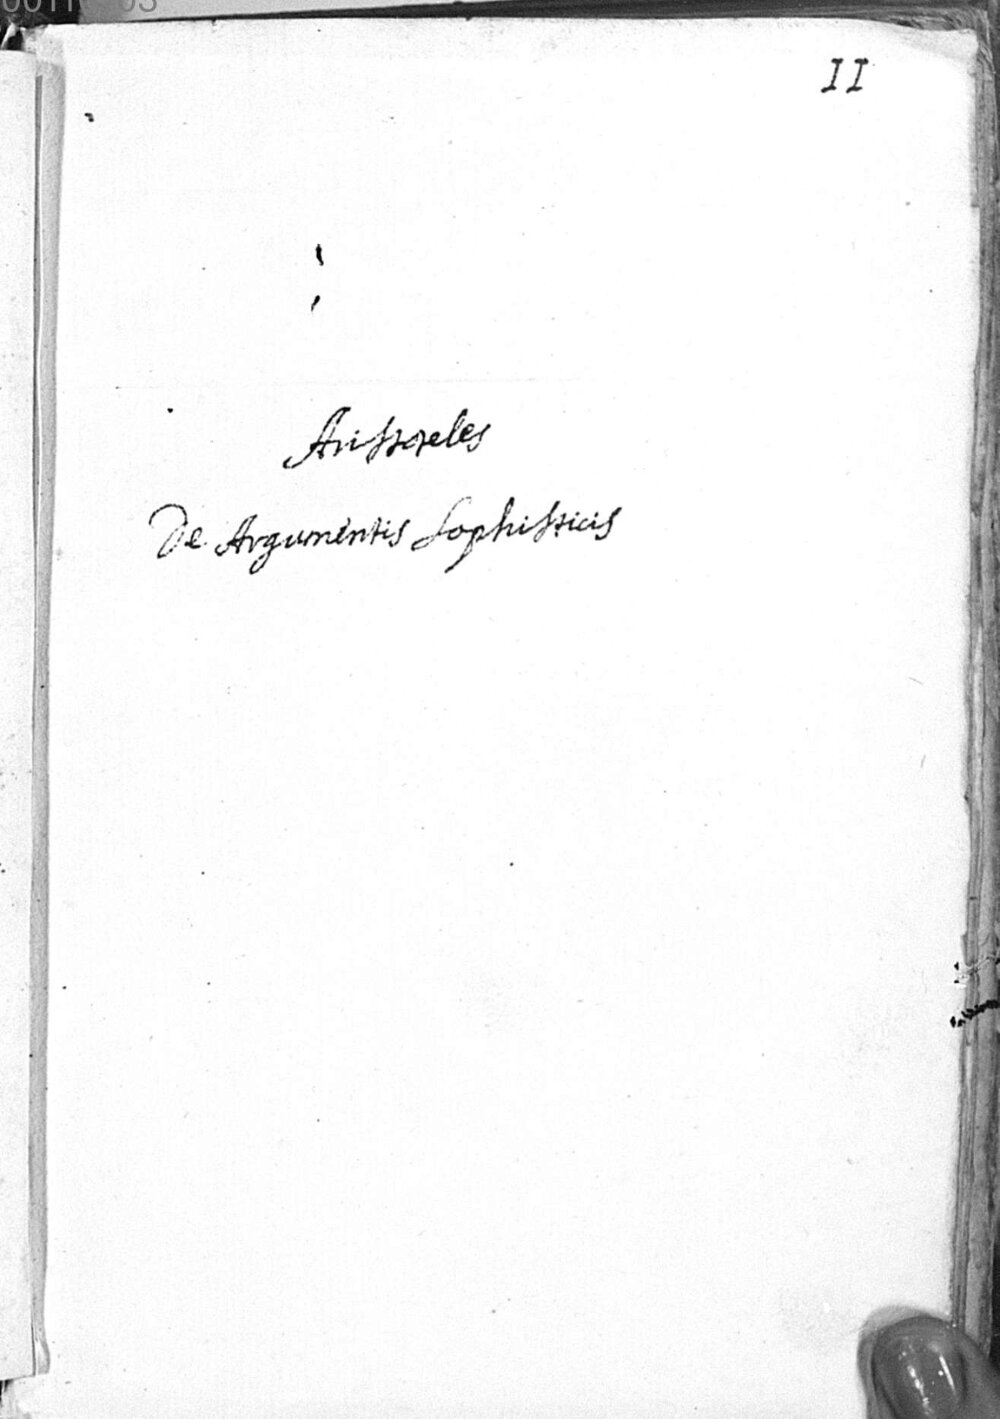 II
Aristoteles
De Argumentis Sophisticis